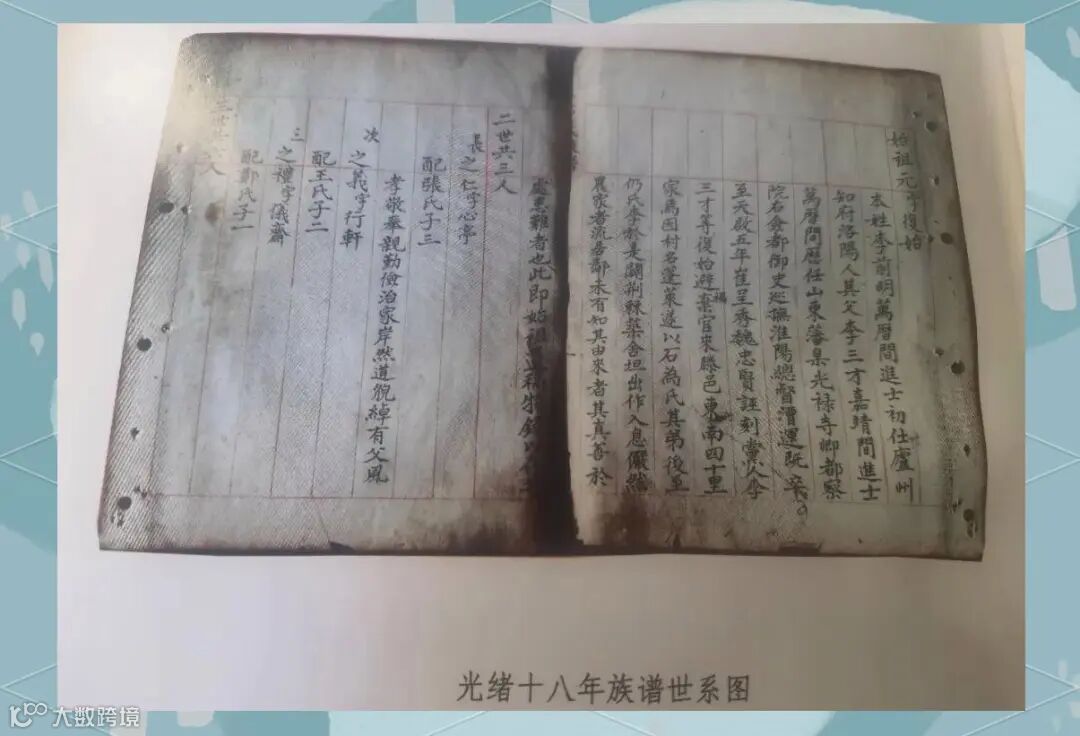 始祖元字復始
本姓李前明萬曆間進士初仕廬州
知府洛陽人其父李三才嘉靖間進士
萬曆間歷任山東藩臬光祿寺卿都察
院右僉都御史巡撫淮陽總督漕運既卒
至天啟五年崔呈秀魏忠賢誣劾黨人李
三才等復始避禍棄官來滕邑東南四十里
家焉因村名蓬萊遂以石為氏其弟後里
仍氏李於是闢荆棘築舍坦出作入息儼然
農家者流居鄰未有知其由來者其真善於
處患難者也此即始祖
二世共三人
長之仁字心亭
配張氏子三
孝敬奉親勤儉治家岸然道貌綽有父風
次之義字行軒
配王氏子二
三之禮字儀齋
配鄭氏子一
三世共 人
光绪十八年族谱世系图
大数跨境